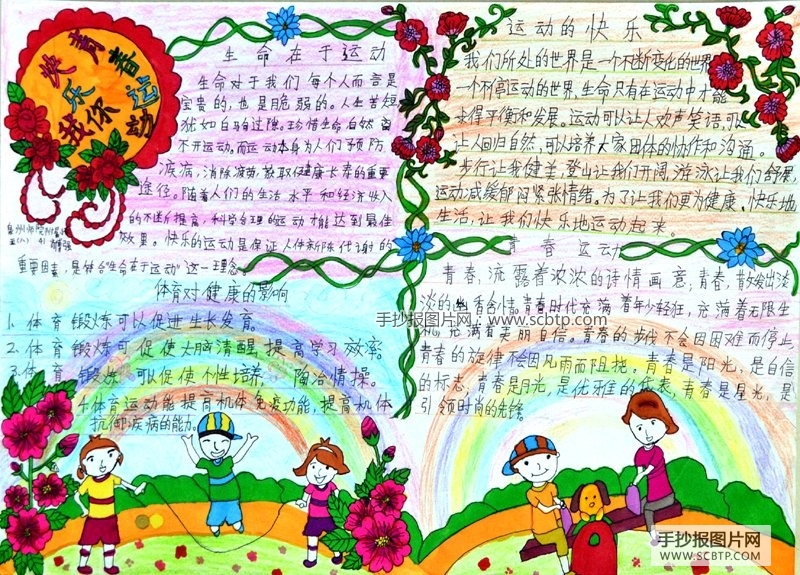 快乐青春运动我你
生命在于运动
生命对于我们每个人而言是
宝贵的,也是脆弱的。人生苦短
犹如白驹过隙。珍惜生命,自然离
不开运动。而运动本身为人们预防
疾病,消除疲劳,获取健康长寿的重要
途径。随着人们的生活水平和经济收入
的不断提高,科学合理的运动才能达到最佳
效果。快乐的运动是保证人体新陈代谢的
重要因素,是符合“生命在于运动”这一理念。
体育对健康的影响
1.体育锻炼可以促进生长发育。
2.体育锻炼可促使大脑清醒,提高学习效率。
3.体育锻炼可以促使个性培养,陶冶情操。
体育运动能提高机体免疫功能,提高机体
抗御疾病的能力。
运动的快乐
我们所处的世界是一个不断变化的世界
一个不停运动的世界,生命只有在运动中才能
求得平衡和发展。运动可以让人欢声笑语,可以
让人回归自然,可以培养大家团体的协作和沟通。
步行让我健美,登山让我们开阔,游泳让我们舒展,
运动减缓郁闷紧张情绪。为了让我们更为健康、快乐地
生活,让我们快乐地运动起来。
青春运动
青春,流露着浓浓的诗情画意;青春,散发出淡
淡的幽香含情。青春时代充满着年少轻狂,充满着无限生
机,充满着美丽自信。青春的步伐不会因困难而停止,
青春的旋律不会因风雨而阻扰。青春是阳光,是自信
的标志,青春是月光,是优雅的代表,青春是星光,是
引领时尚的先锋。
手抄报图片网:www.scbtp.com
手抄报图片网
WWW.SCBTP.COM